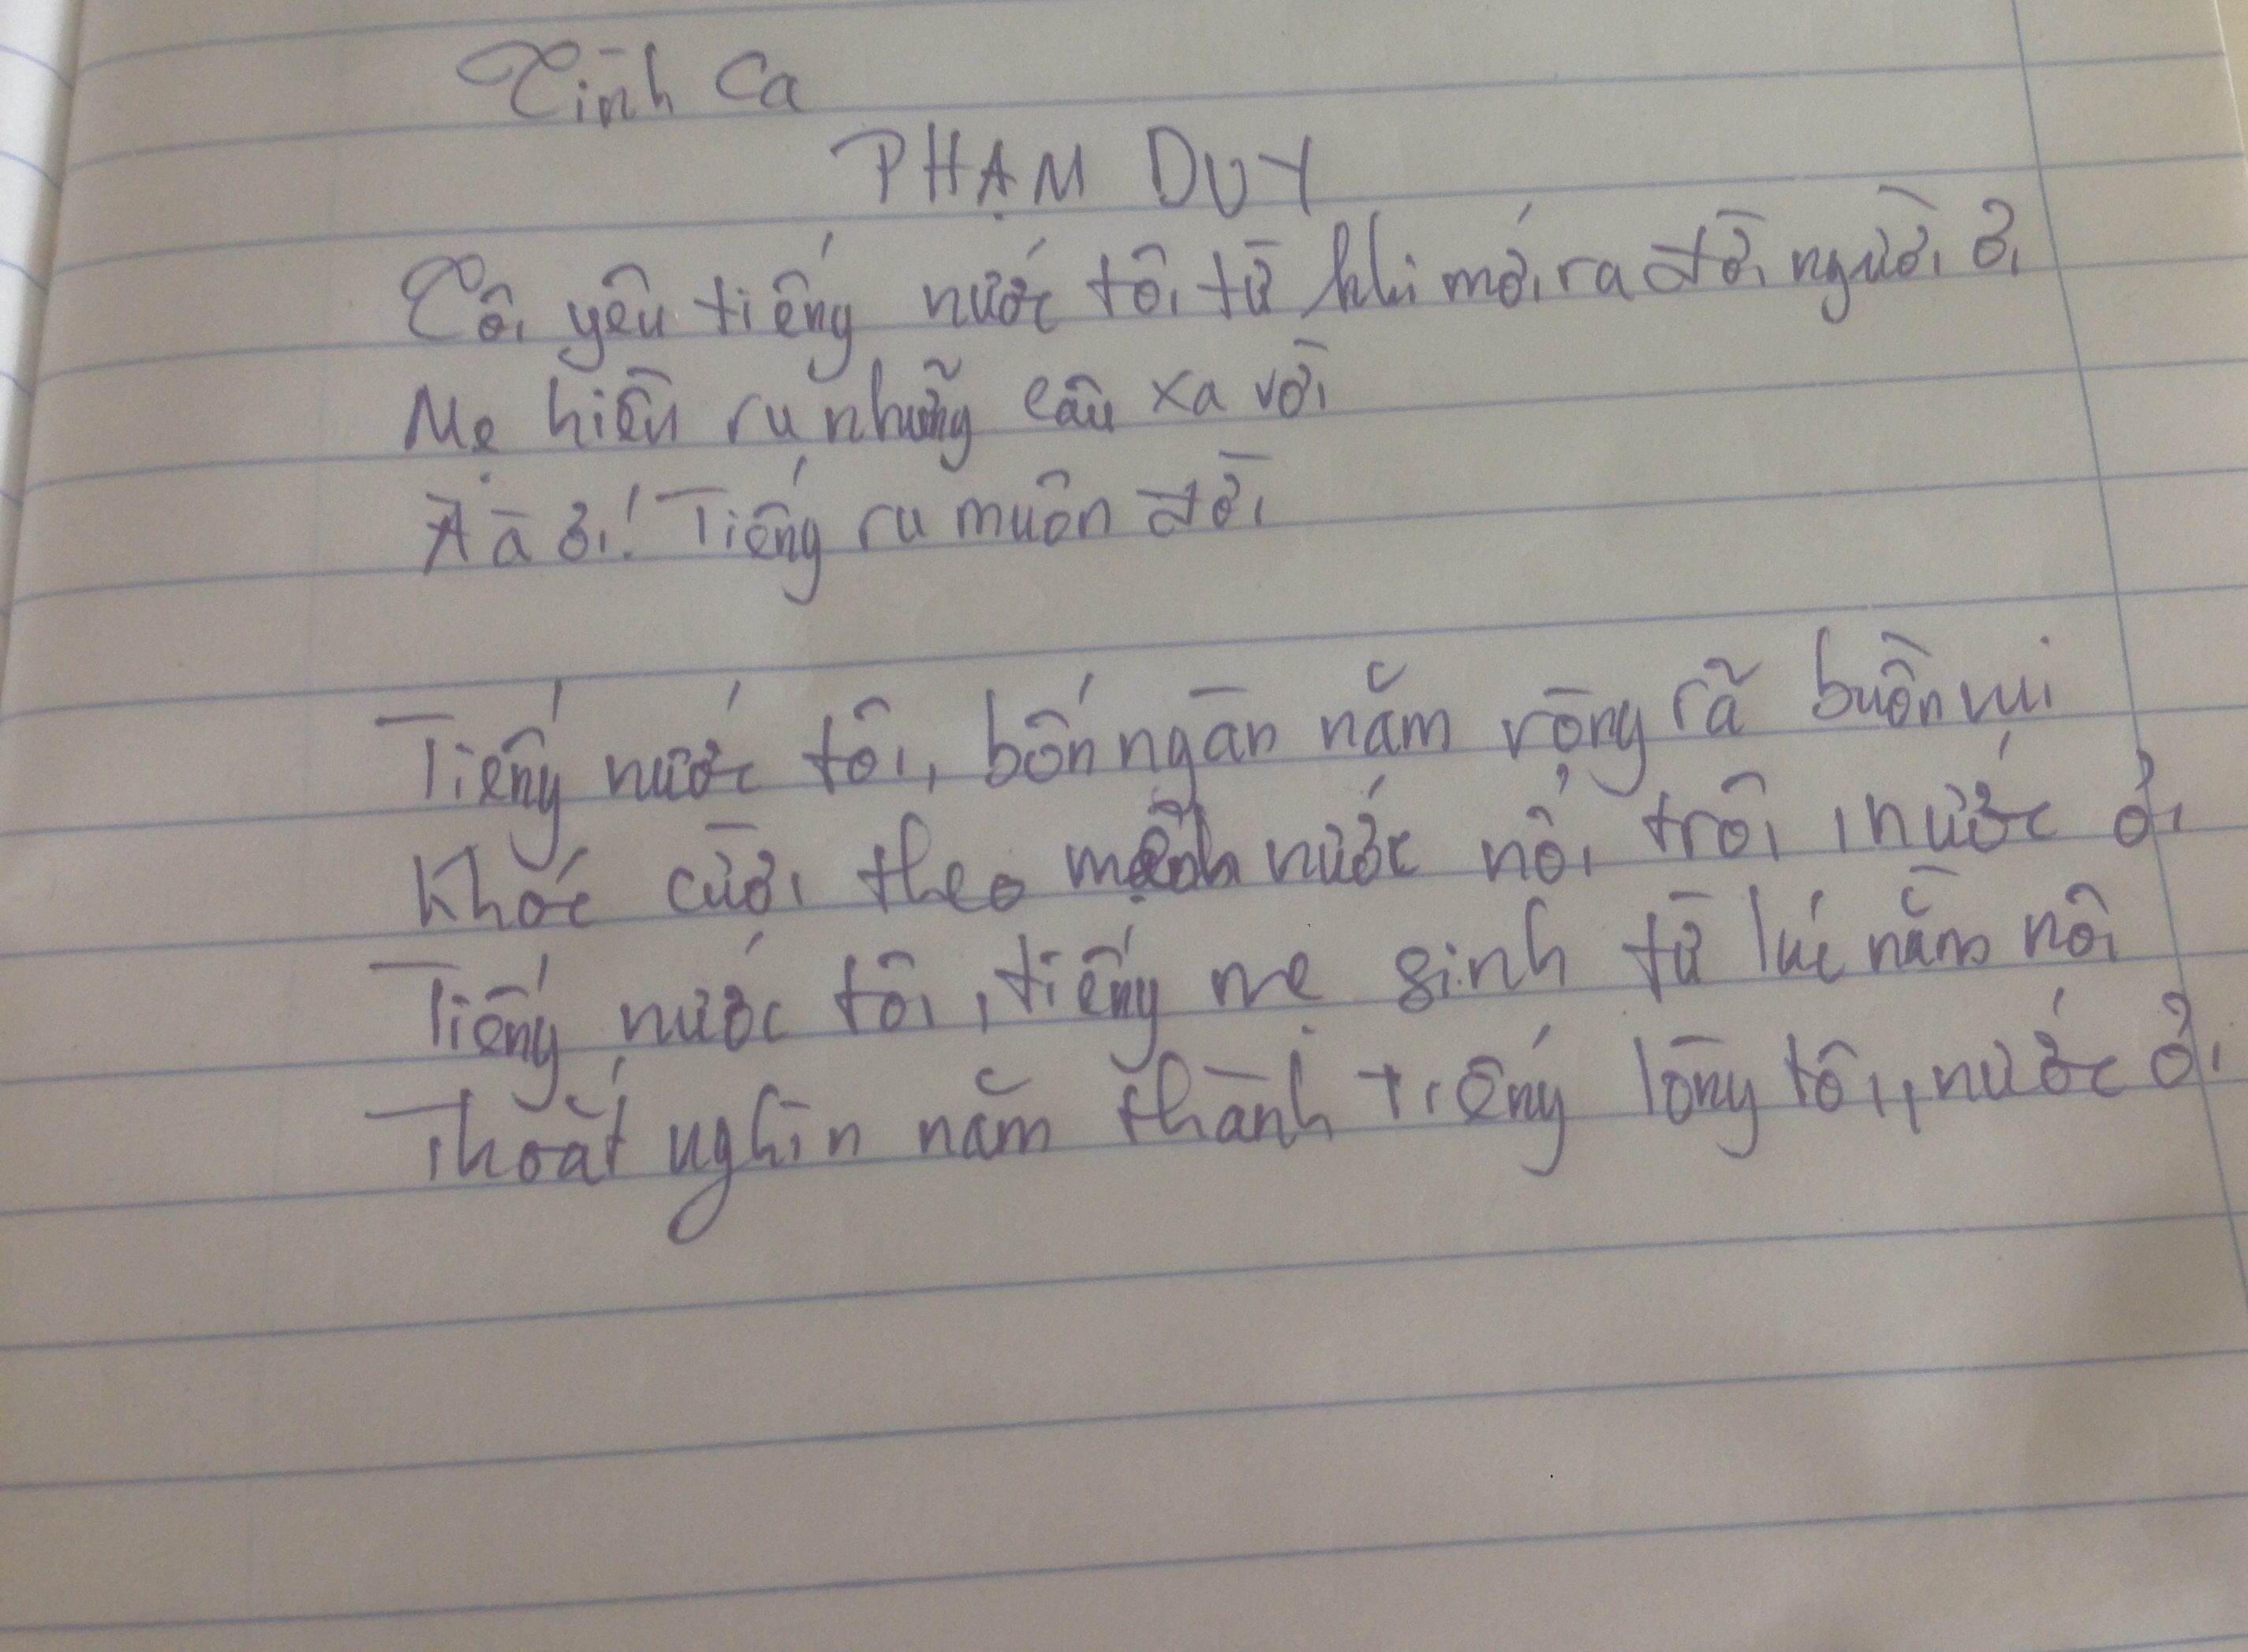 Tình Ca
PHẠM DUY
Tôi yêu tiếng nước tôi từ khi mới ra đời người ơi
Mẹ hiền ru những câu xa vời
À à ơi! Tiếng ru muôn đời
Tiếng nước tôi, bốn ngàn năm ròng rã buồn vui
Khóc cười theo mệnh nước nổi trôi, nước ơi
Tiếng nước tôi, tiếng mẹ sinh từ lúc nằm nôi
Thoắt nghìn năm thành tiếng lòng tôi, nước ơi